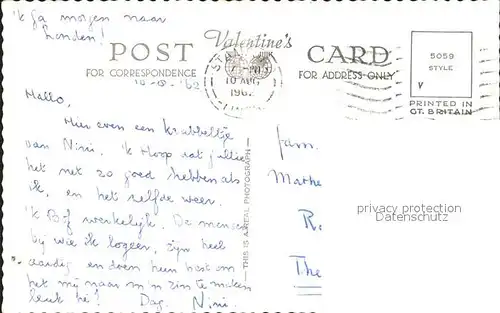 'k Ga morgen naar
Londen!
Valentine's
POST CARD
FOR CORRESPONDENCE
FOR ADDRESS ONLY
5059
STYLE
V
PRINTED IN
GT. BRITAIN
10 AUG
1962
Hallo,
Hier even een krabbeltje
van Nini. 'k Hoop dat jullie
het net zo goed hebben als
ik, en het zelfde weer.
'k Bof werkelijk. De mensen
bij wie ik logeer, zijn heel
aardig en doen hun best om
het mij naar m'n zin te maken
leuk hè! Dag. Nini.
THIS IS A REAL PHOTOGRAPH
fam.
Mathe
R.
The
privacy protection
Datenschutz